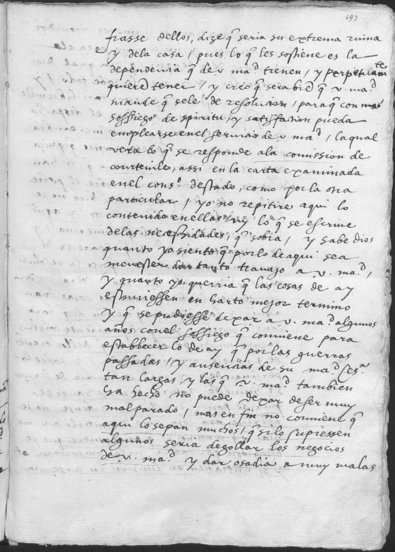 fiasse dellos, dize q̃ seria su extrema ruina
y dela casa / pues lo q̃ les sostiene es la
dependencia q̃ de v. mad tienen / y perpetuamte
quiere tener / y creo q̃ sera bien q̃ v. mad
mande q̃ sele de resolucion / para q̃ con mas
sossiego de spiritu / y satisfacion pueda
emplearse en el seruicio de v mad / la qual
vera lo q̃ se responde ala comission de
courteuile, assi en la carta examinada
en el conso destado, como por la otra
particular / yo no repitire aqui lo
contenido en ellas / lo q̃ se escriue
delas necessidades, q̃ sobra / y sabe dios
quanto yo siento q̃ por lo de aqui sea
menester dar tanto trauajo a v. mad /
y quanto yo querria q̃ las cosas de ay
estuuiessen en harto mejor termino
y q̃ se pudiesse dexar a v. mad algunos
años con el sossiego q̃ conuiene para
establecer lo de ay q̃ por las guerras
passadas / y ausencias de su mad
tan largas y las q̃ v. mad tambien
ha hecho no puede dexar de ser muy
malparado / mas en fin no conuiene q̃
aqui lo sepan muchos / q̃ si lo supiessen
algunos seria degollar los negocios
de v. mad y dar osadia a muy malas